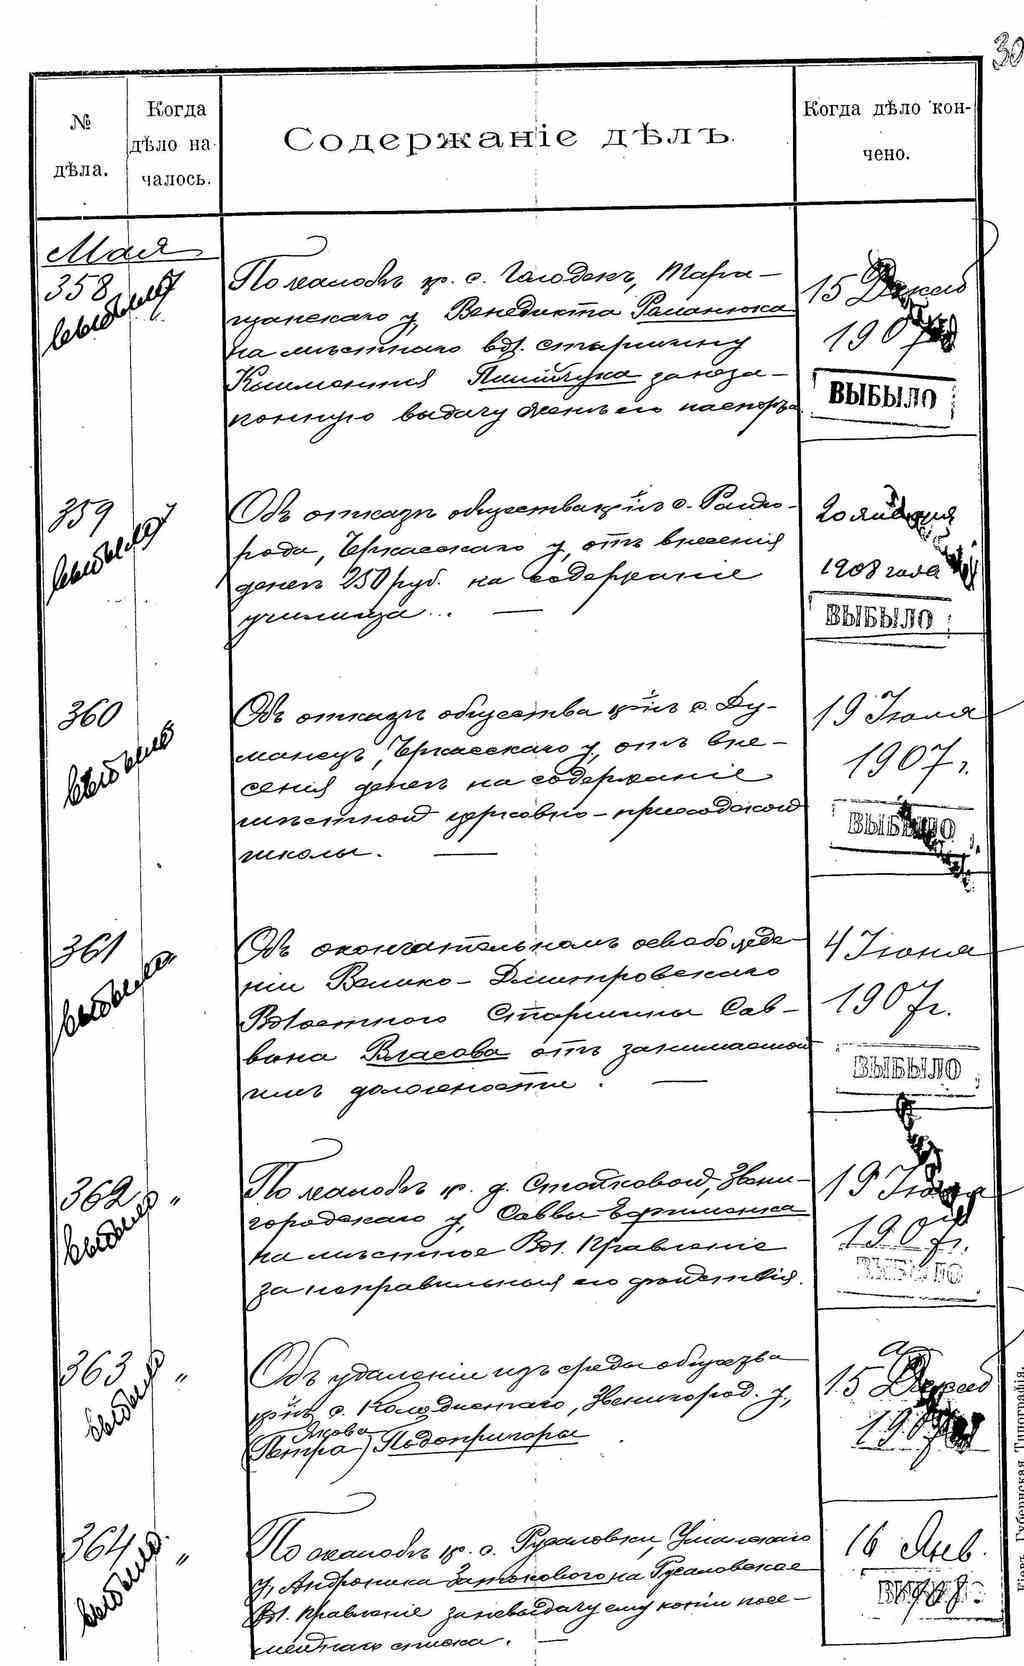 30
№ дѣла.
Когда дѣло началось.
Содержаніе дѣлъ.
Когда дѣло кончено.
Мая
358
выбыло
По жалобѣ кр. с. Тара-
щанскаго у. Венедикта Романюка
на мѣстнаго вол. старшину
Климентія за неза-
конную выдачу женѣ его паспорта
15 Декаб
1907
ВЫБЫЛО
359
выбыло
Объ отказѣ общества кр-нъ с.
Черкасскаго у, отъ внесенія
денегъ 250 руб. на содержаніе
училища. —
20 Января
1908 года
ВЫБЫЛО
360 "
выбыло
Объ отказѣ общества кр-нъ с. Ду-
манецъ, Черкасскаго у, отъ вне-
сенія денегъ на содержаніе
мѣстной церковно-приходской
школы. —
19 Іюля
1907 г.
ВЫБЫЛО
361 "
выбыло
Объ окончательномъ освобожде-
ніи Велико-Дмитровскаго
Волостного Старшины Сав-
Власова отъ занимаемой
имъ должности. —
4 Іюня
1907 г.
ВЫБЫЛО
362 "
выбыло
По жалобѣ кр. д. Стойковой, Звени-
городскаго у, Саввы Ефименка
на мѣстное Вол. Правленіе
за неправильныя его дѣйствія.
19 Іюля
1907 г.
ВЫБЫЛО
363 "
выбыло
Объ удаленіи изъ среды общества
кр-нъ с. Звенигород. у,
Якова
(Петра) Подопригоры
15 Декаб
1907
364 "
выбыло
По жалобѣ кр. с. Русаловки, Уманскаго
у, Андроника на Русаловское
Вол. Правленіе за невыдачу ему копіи посе-
мейнаго списка. —
16 Янв.
1908.
ВЫБЫЛО
Кіевъ. Губернская Типографія.